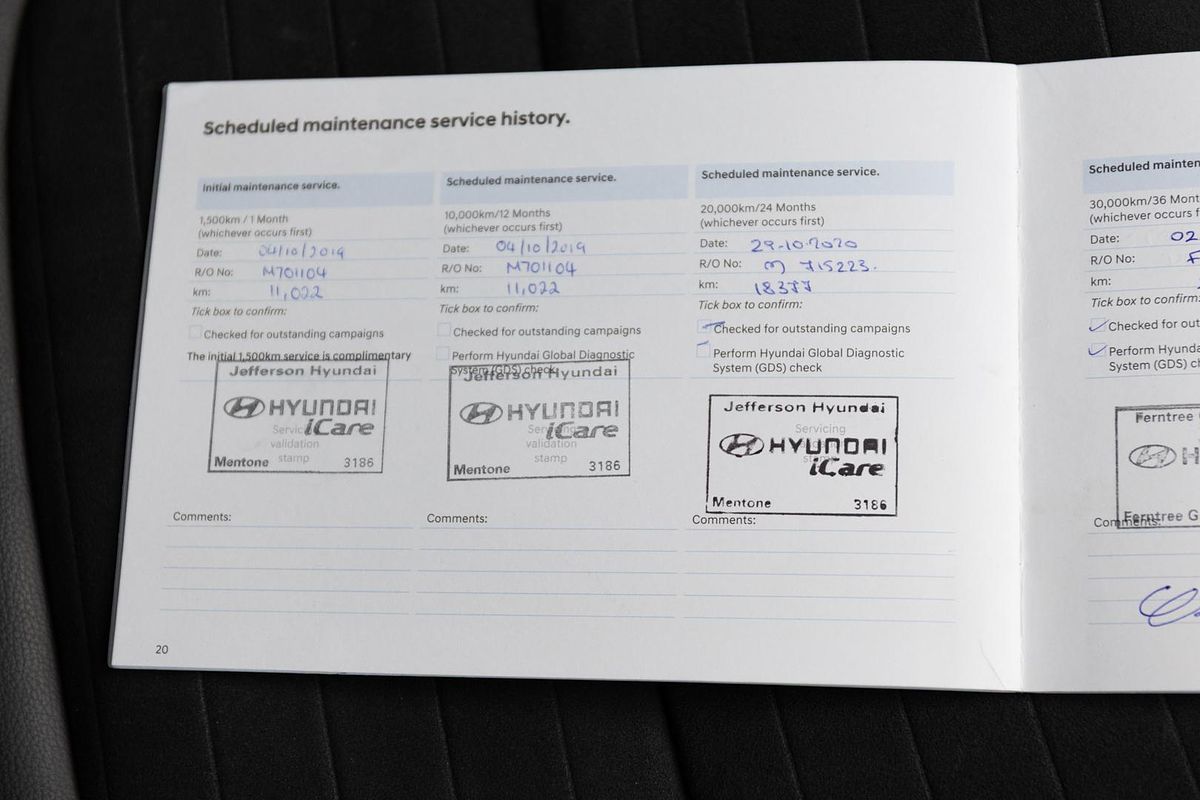 Scheduled maintenance service history.
Initial maintenance service.
1,500km / 1 Month
(whichever occurs first)
Date: 04/10/2019
R/O No: M701104
km: 11,022
Tick box to confirm:
Checked for outstanding campaigns
The initial 1,500km service is complimentary
Jefferson Hyundai
HYUNDAI
iCare
Servicing
validation
stamp
Mentone 3186
Comments:
Scheduled maintenance service.
10,000km/12 Months
(whichever occurs first)
Date: 04/10/2019
R/O No: M701104
km: 11,022
Tick box to confirm:
Checked for outstanding campaigns
Perform Hyundai Global Diagnostic
System (GDS) check
Jefferson Hyundai
HYUNDAI
iCare
Servicing
validation
stamp
Mentone 3186
Comments:
Scheduled maintenance service.
20,000km/24 Months
(whichever occurs first)
Date: 29-10-2020
R/O No: M 715223.
km: 18377
Tick box to confirm:
Checked for outstanding campaigns
Perform Hyundai Global Diagnostic
System (GDS) check
Jefferson Hyundai
Servicing
HYUNDAI
iCare
Mentone 3186
Comments:
20
Scheduled mainten
30,000km/36 Mont
(whichever occurs f
Date: 02
R/O No: F
km:
Tick box to confirm:
Checked for out
Perform Hyunda
System (GDS) ch
Ferntree G
H
Ferntree G
Comments: